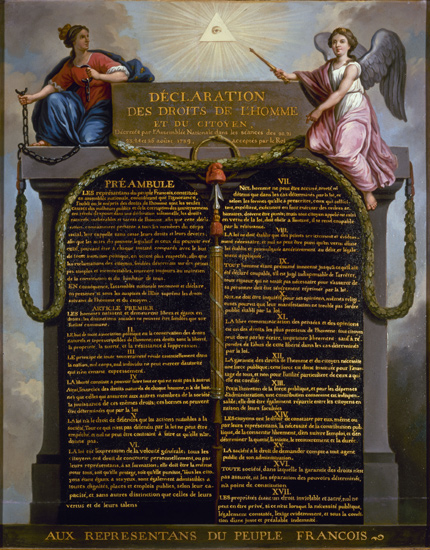 DÉCLARATION
DES DROITS DE L'HOMME
ET DU CITOYEN,
Décrétés par l'Assemblée Nationale dans les séances des 20, 21
23, 24 et 26 août 1789, acceptés par le Roi
PRÉAMBULE
LES représentans du peuple François, constitués
en assemblée nationale, considérant que l'ignorance,
l'oubli ou le mépris des droits de l'homme sont les seules
causes des malheurs publics et de la corruption des gouvernemens
EN conséquence, l'assemblée nationale reconnoît et déclare
en présence et sous les auspices de l'Être suprême les droits
suivans de l'homme et du citoyen.
ARTICLE PREMIER
LES hommes naissent et demeurent libres et égaux en
droits. les distinctions sociales ne peuvent être fondées que sur
l'utilité commune.
II.
LE but de toute association politique est la conservation des droits
naturels et imprescriptibles de l'homme; ces droits sont la liberté,
la propriété, la sureté, et la résistance à l'oppression.
III.
LE principe de toute souveraineté réside essentiellement dans
la nation, nul corps, nul individu ne peut exercer d'autorité
qui n'en émane expressément.
IV.
LA liberté consiste à pouvoir faire tout ce qui ne nuit pas à autrui
V.
LA loi n'a le droit de défendre que les actions nuisibles à la
société. Tout ce qui n'est pas défendu par la loi ne peut être
empêché, et nul ne peut être contraint à faire ce qu'elle n'or-
donne pas.
VI.
LA loi est l'expression de la volonté générale; tous les
citoyens ont droit de concourir personnellement, ou par
leurs représentans, à sa formation; elle doit être la même
pour tous, soit qu'elle protège, soit qu'elle punisse. Tous les cito-
yens étant égaux à ses yeux, sont également admissibles à
toutes dignités, places et emplois publics, selon leur ca-
pacité, et sans autres distinctions que celles de leurs
vertus et de leurs talens.
VII.
NUL homme ne peut être accusé, arrêté ni
détenu que dans les cas déterminés par la loi, et
selon les formes qu'elle a prescrites, ceux qui sollici-
tent, expédient, exécutent ou font exécuter des ordres ar-
bitraires, doivent être punis; mais tout citoyen appelé ou saisi
en vertu de la loi, doit obéir à l'instant, il se rend coupable
par la résistance.
VIII.
LA loi ne doit établir que des peines strictement et évidem-
ment nécessaires, et nul ne peut être puni qu'en vertu d'une
loi établie et promulguée antérieurement au délit, et léga-
lement appliquée.
IX.
TOUT homme étant présumé innocent jusqu'à ce qu'il ait
été déclaré coupable, s'il est jugé indispensable de l'arrêter,
toute rigueur qui ne serait pas nécessaire pour s'assurer de
sa personne doit être sévèrement réprimée par la loi.
X.
NUL ne doit être inquiété pour ses opinions, mêmes religi-
euses pourvu que leur manifestation ne trouble pas l'ordre
public établi par la loi.
XI.
LA libre communication des pensées et des opinions
est un des droits les plus précieux de l'homme; tout citoyen
peut donc parler, écrire, imprimer librement: sauf à ré-
pondre de l'abus de cette liberté dans les cas déterminés
par la loi.
XII.
LA garantie des droits de l'homme et du citoyen nécessite
une force publique; cette force est donc instituée pour l'avan-
tage de tous, et non pour l'utilité particulière de ceux à qui
elle est confiée.
XIII.
POUR l'entretien de la force publique, et pour les dépenses
d'administration, une contribution commune est indispen-
sable; elle doit être également répartie entre les citoyens en
raison de leurs facultés.
XIV.
LES citoyens ont le droit de constater par eux même ou
par leurs représentans, la nécessité de la contribution publi-
que, de la consentir librement, d'en suivre l'emploi, et d'en
déterminer la quotité, l'assiette, le recouvrement et la durée.
XV.
LA société a le droit de demander compte à tout agent
public de son administration.
XVI.
TOUTE société, dans laquelle la garantie des droits n'est
pas assurée, ni la séparation des pouvoirs déterminée,
n'a point de constitution.
XVII.
LES propriétés étant un droit inviolable et sacré, nul ne
peut en être privé, si ce n'est lorsque la nécessité publique,
légalement constatée, l'exige évidemment, et sous la condi-
tion d'une juste et préalable indemnité.
AUX REPRESENTANS DU PEUPLE FRANCOIS